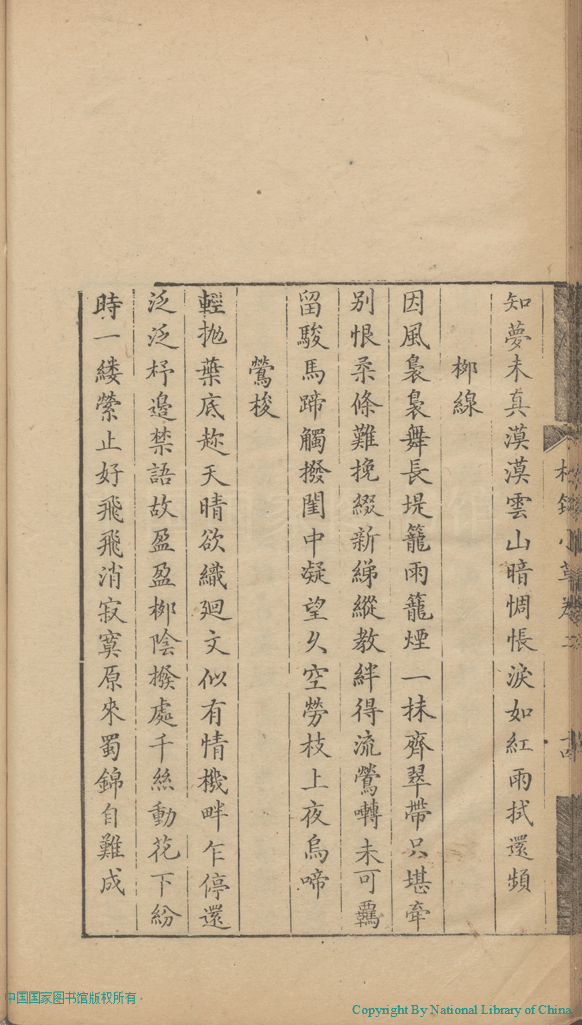 知夢未真漠漠雲山暗惆悵淚如紅雨拭還頻
柳線
因風裊裊舞長堤籠雨籠煙一抹齊翠帶只堪牽
别恨柔條難挽綴新綈縱教絆得流鶯囀未可羈
留駿馬蹄觸撥閨中凝望久空勞枝上夜烏啼
鶯梭
輕拋葉底趂天晴欲織廻文似有情機畔乍停還
泛泛杼邊禁語故盈盈柳陰撥處千絲動花下紛
時一縷縈止好飛飛消寂寞原來蜀錦自難成
中国国家图书馆版权所有
Copyright By National Library of China